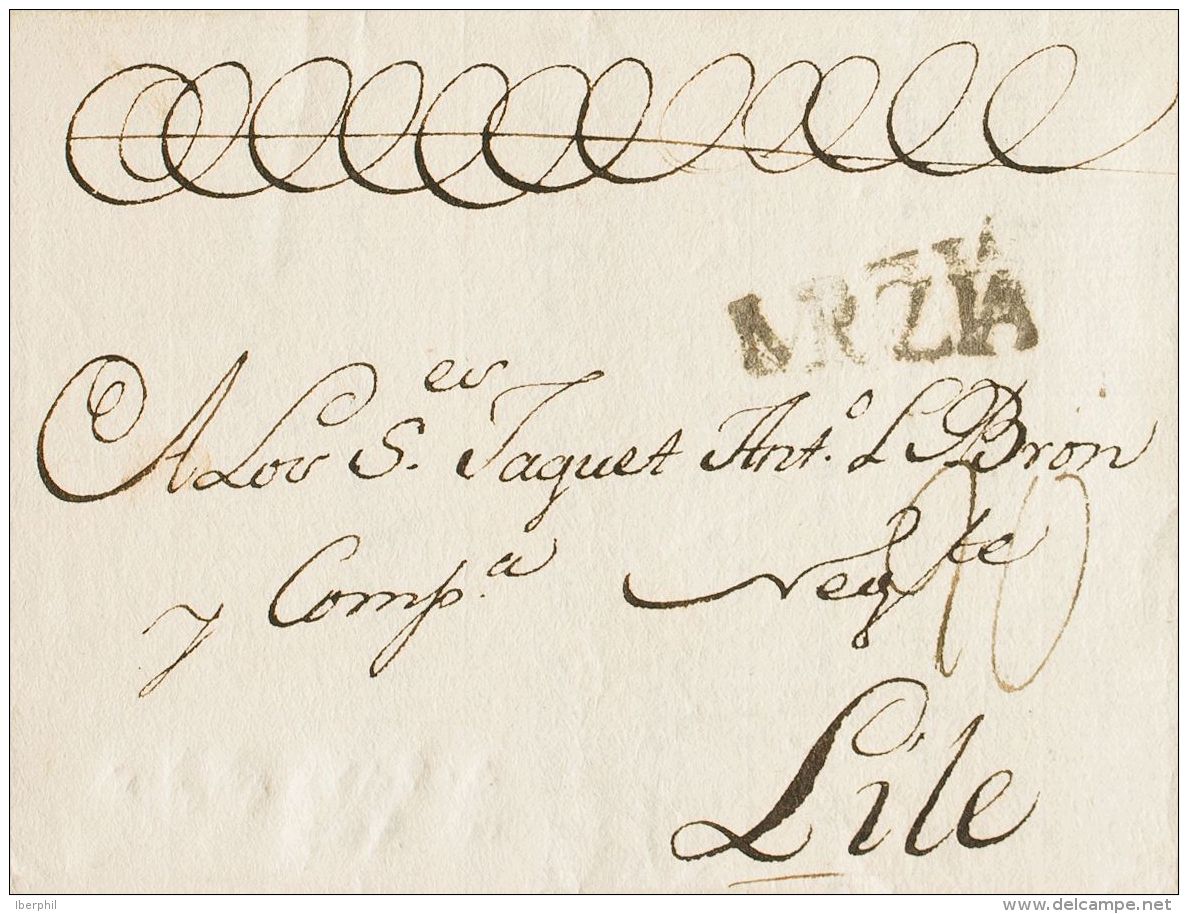 MRZIA
A Los S.^es Jaquet Ant.º L Bron
y Comp.^a Neg^te
20
Lile
Iberphil
delcampe.net